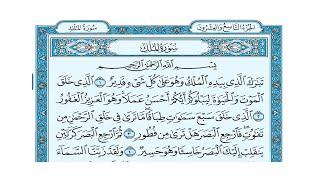 سُورَةُ المُلْكِ الجُزْءُ التَّاسِعُ وَالعِشْرُونَ
سُورَةُ المُلْكِ
بِسْمِ اللَّهِ الرَّحْمَٰنِ الرَّحِيمِ
تَبَٰرَكَ ٱلَّذِي بِيَدِهِ ٱلْمُلْكُ وَهُوَ عَلَىٰ كُلِّ شَيْءٍ قَدِيرٌ ١ ٱلَّذِي خَلَقَ
ٱلْمَوْتَ وَٱلْحَيَوٰةَ لِيَبْلُوَكُمْ أَيُّكُمْ أَحْسَنُ عَمَلًا وَهُوَ ٱلْعَزِيزُ ٱلْغَفُورُ
٢ ٱلَّذِي خَلَقَ سَبْعَ سَمَٰوَٰتٍ طِبَاقًا مَّا تَرَىٰ فِي خَلْقِ ٱلرَّحْمَٰنِ مِن
تَفَٰوُتٍ فَٱرْجِعِ ٱلْبَصَرَ هَلْ تَرَىٰ مِن فُطُورٍ ٣ ثُمَّ ٱرْجِعِ ٱلْبَصَرَ كَرَّتَيْنِ
يَنقَلِبْ إِلَيْكَ ٱلْبَصَرُ خَاسِئًا وَهُوَ حَسِيرٌ ٤ وَلَقَدْ زَيَّنَّا ٱلسَّمَآءَ